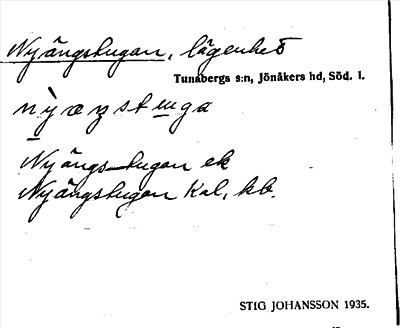 Nyängstugan, lägenhet
Tunabergs s:n, Jönåkers hd, Söd. l.
nỳæŋstuga
Nyängs-tugan ek
Nyängstugan Kal, kb.
STIG JOHANSSON 1935.